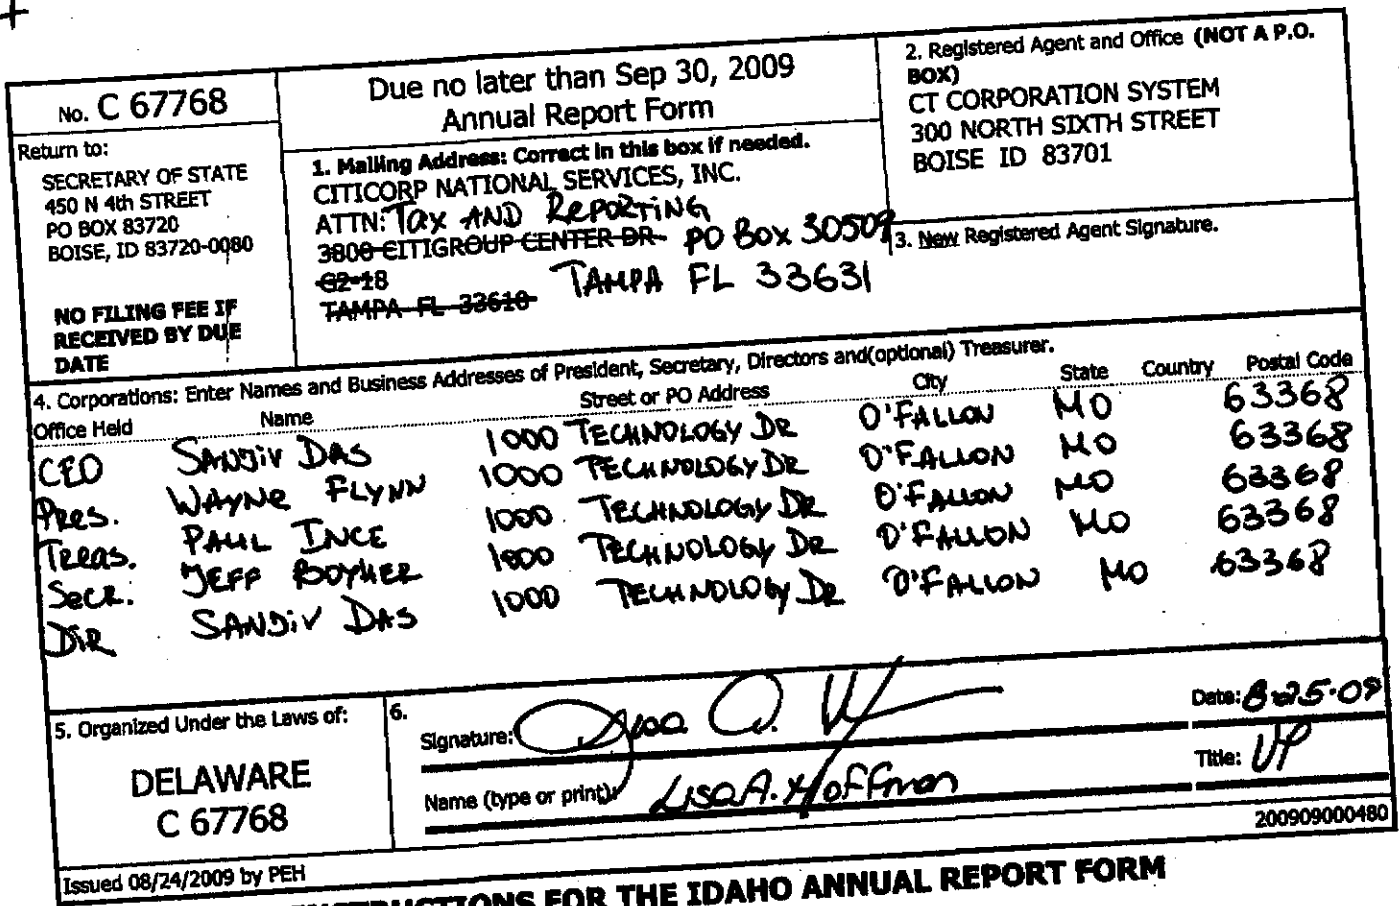 No. C 67768
Return to:
SECRETARY OF STATE
450 N 4th STREET
PO BOX 83720
BOISE, ID 83720-0080
NO FILING FEE IF
RECEIVED BY DUE
DATE
Due no later than Sep 30, 2009
Annual Report Form
1. Mailing Address: Correct in this box if needed.
CITICORP NATIONAL SERVICES, INC.
ATTN: TAX AND REPORTING
3800 CITIGROUP CENTER DR PO BOX 30509
G2-18 TAMPA FL 33631
TAMPA FL 33610
2. Registered Agent and Office (NOT A P.O.
BOX)
CT CORPORATION SYSTEM
300 NORTH SIXTH STREET
BOISE ID 83701
3. New Registered Agent Signature.
4. Corporations: Enter Names and Business Addresses of President, Secretary, Directors and(optional) Treasurer.
Office Held Name Street or PO Address City State Country Postal Code
CEO SANJIV DAS 1000 TECHNOLOGY DR O'FALLON MO 63368
PRES. WAYNE FLYNN 1000 TECHNOLOGY DR O'FALLON MO 63368
TREAS. PAUL INCE 1000 TECHNOLOGY DR O'FALLON MO 63368
SECR. JEFF BOYHER 1000 TECHNOLOGY DR O'FALLON MO 63368
DIR SANJIV DAS 1000 TECHNOLOGY DR O'FALLON MO 63368
5. Organized Under the Laws of:
DELAWARE
C 67768
6.
Signature: Lisa A. Date: 8-25-09
Name (type or print): Lisa A. Hoffman Title: VP
200909000480
Issued 08/24/2009 by PEH
INSTRUCTIONS FOR THE IDAHO ANNUAL REPORT FORM